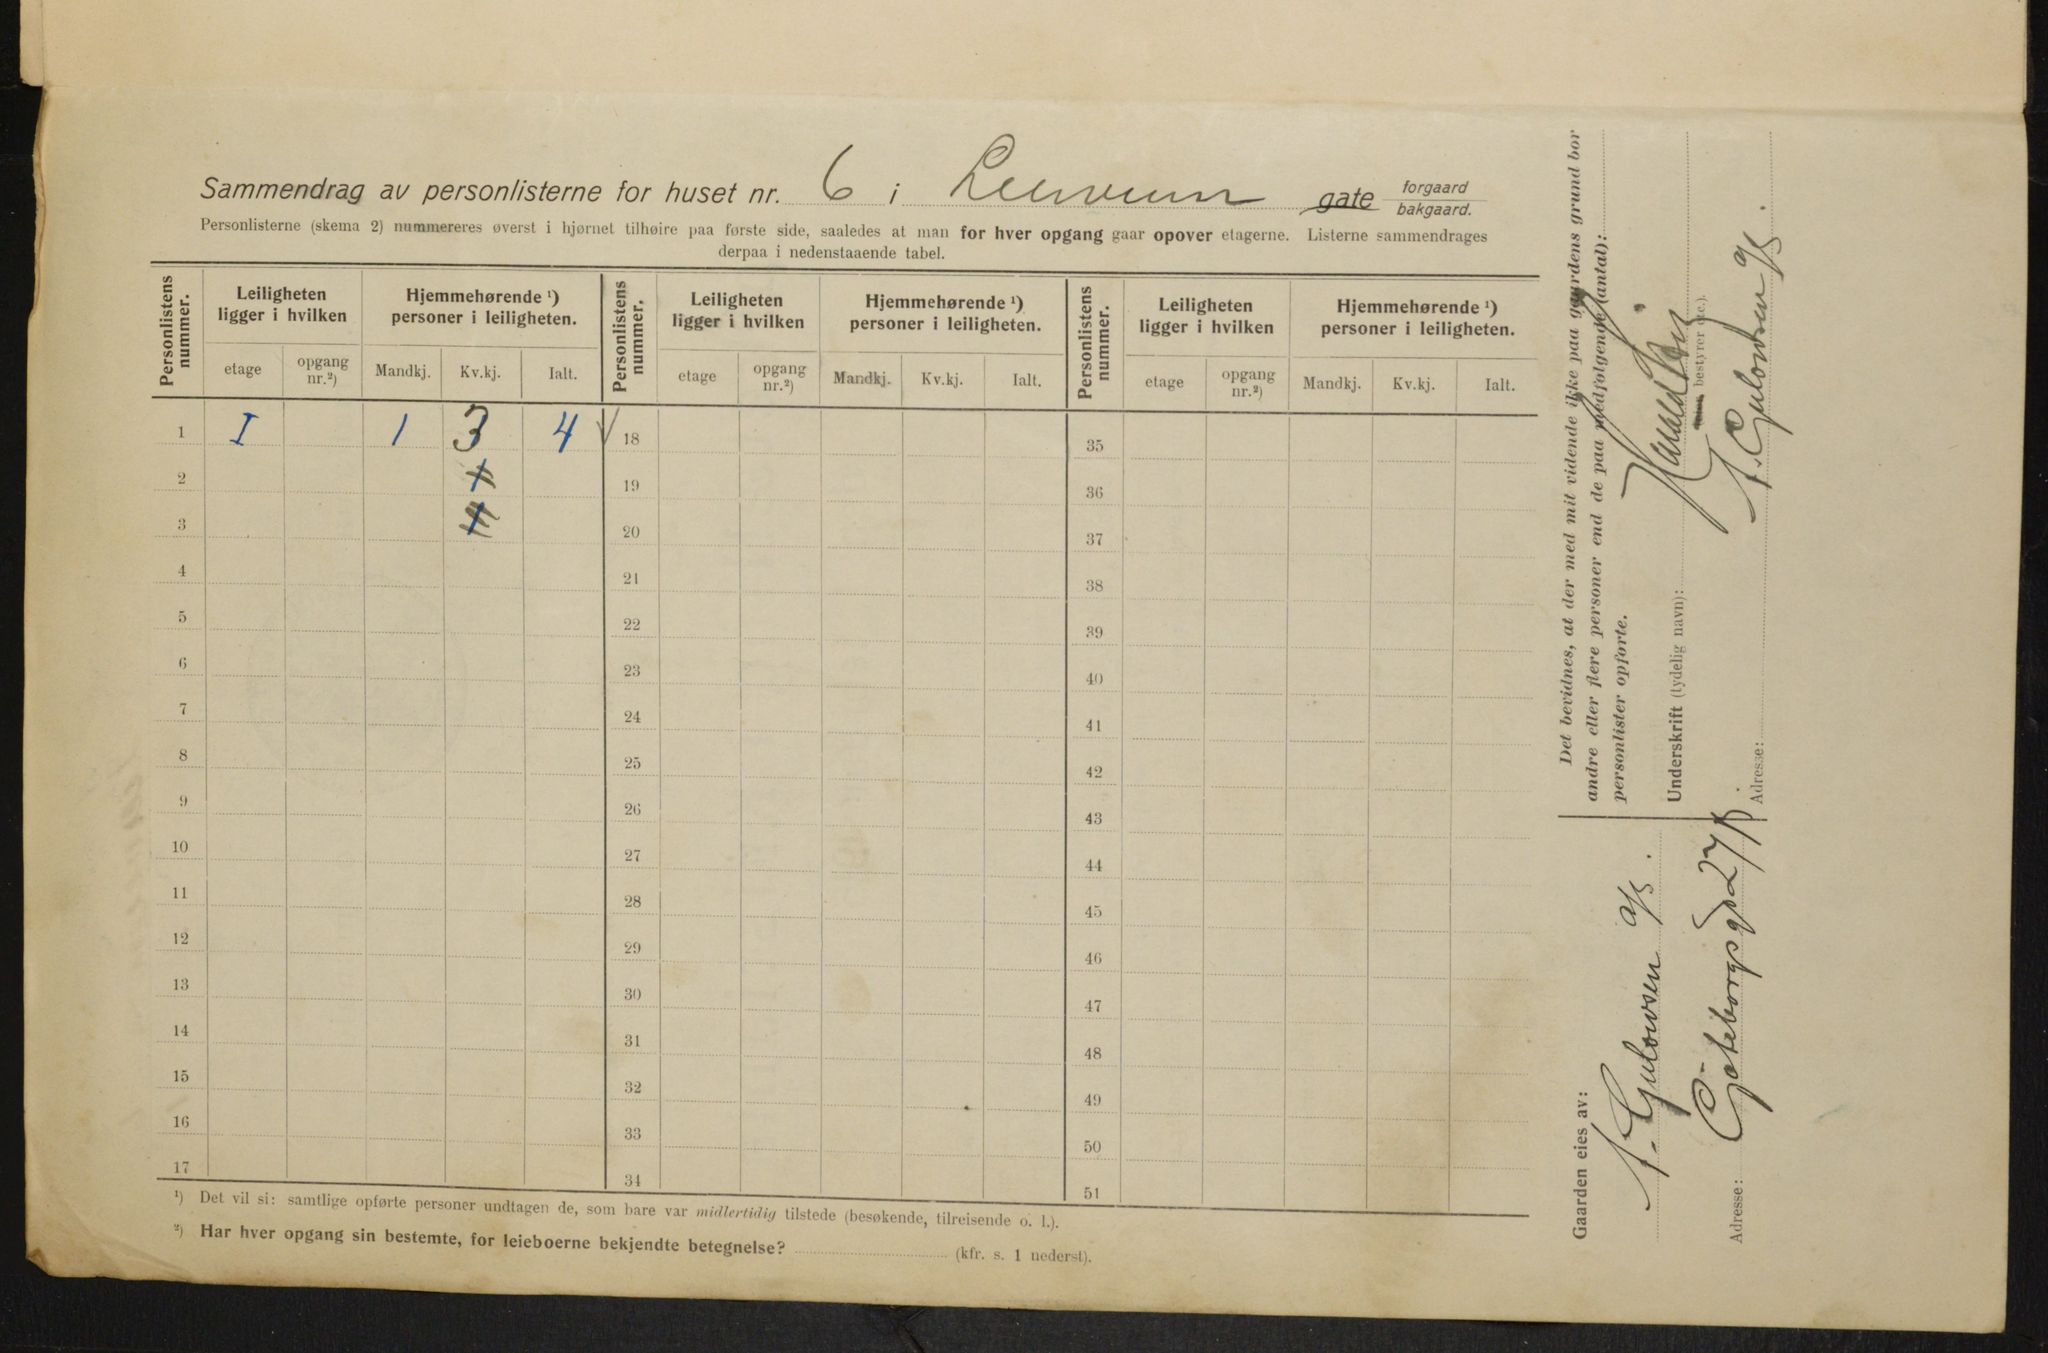 Sammendrag av personlisterne for huset nr. 6 i gate forgaard bakgaard.
Personlisterne (skema 2) nummereres øverst i hjørnet tilhøire paa første side, saaledes at man for hver opgang gaar opover etagerne. Listerne sammendrages
derpaa i nedenstaaende tabel.
Personlistens nummer. Leiligheten ligger i hvilken Hjemmehørende ¹) personer i leiligheten. Personlistens nummer. Leiligheten ligger i hvilken Hjemmehørende ¹) personer i leiligheten. Personlistens nummer. Leiligheten ligger i hvilken Hjemmehørende ¹) personer i leiligheten.
etage opgang nr.²) Mandkj. Kv.kj. Ialt. etage opgang nr.²) Mandkj. Kv.kj. Ialt. etage opgang nr.²) Mandkj. Kv.kj. Ialt.
1 I 1 3 4 18 35
2 19 36
3 20 37
4 21 38
5 22 39
6 23 40
7 24 41
8 25 42
9 26 43
10 27 44
11 28 45
12 29 46
13 30 47
14 31 48
15 32 49
16 33 50
17 34 51
¹) Det vil si: samtlige opførte personer undtagen de, som bare var midlertidig tilstede (besøkende, tilreisende o. l.).
²) Har hver opgang sin bestemte, for leieboerne bekjendte betegnelse? (kfr. s. 1 nederst).
Gaarden eies av:
Gulowsen A/S.
Adresse: Göteborgsgd 27/B.
Det bevidnes, at der med mit vidende ikke paa gaardens grund bor
andre eller flere personer end de paa medfølgende (antal):
personlister opførte.
Underskrift (tydelig navn):
bestyrer etc.).
Gulowsen A/S.
Adresse: